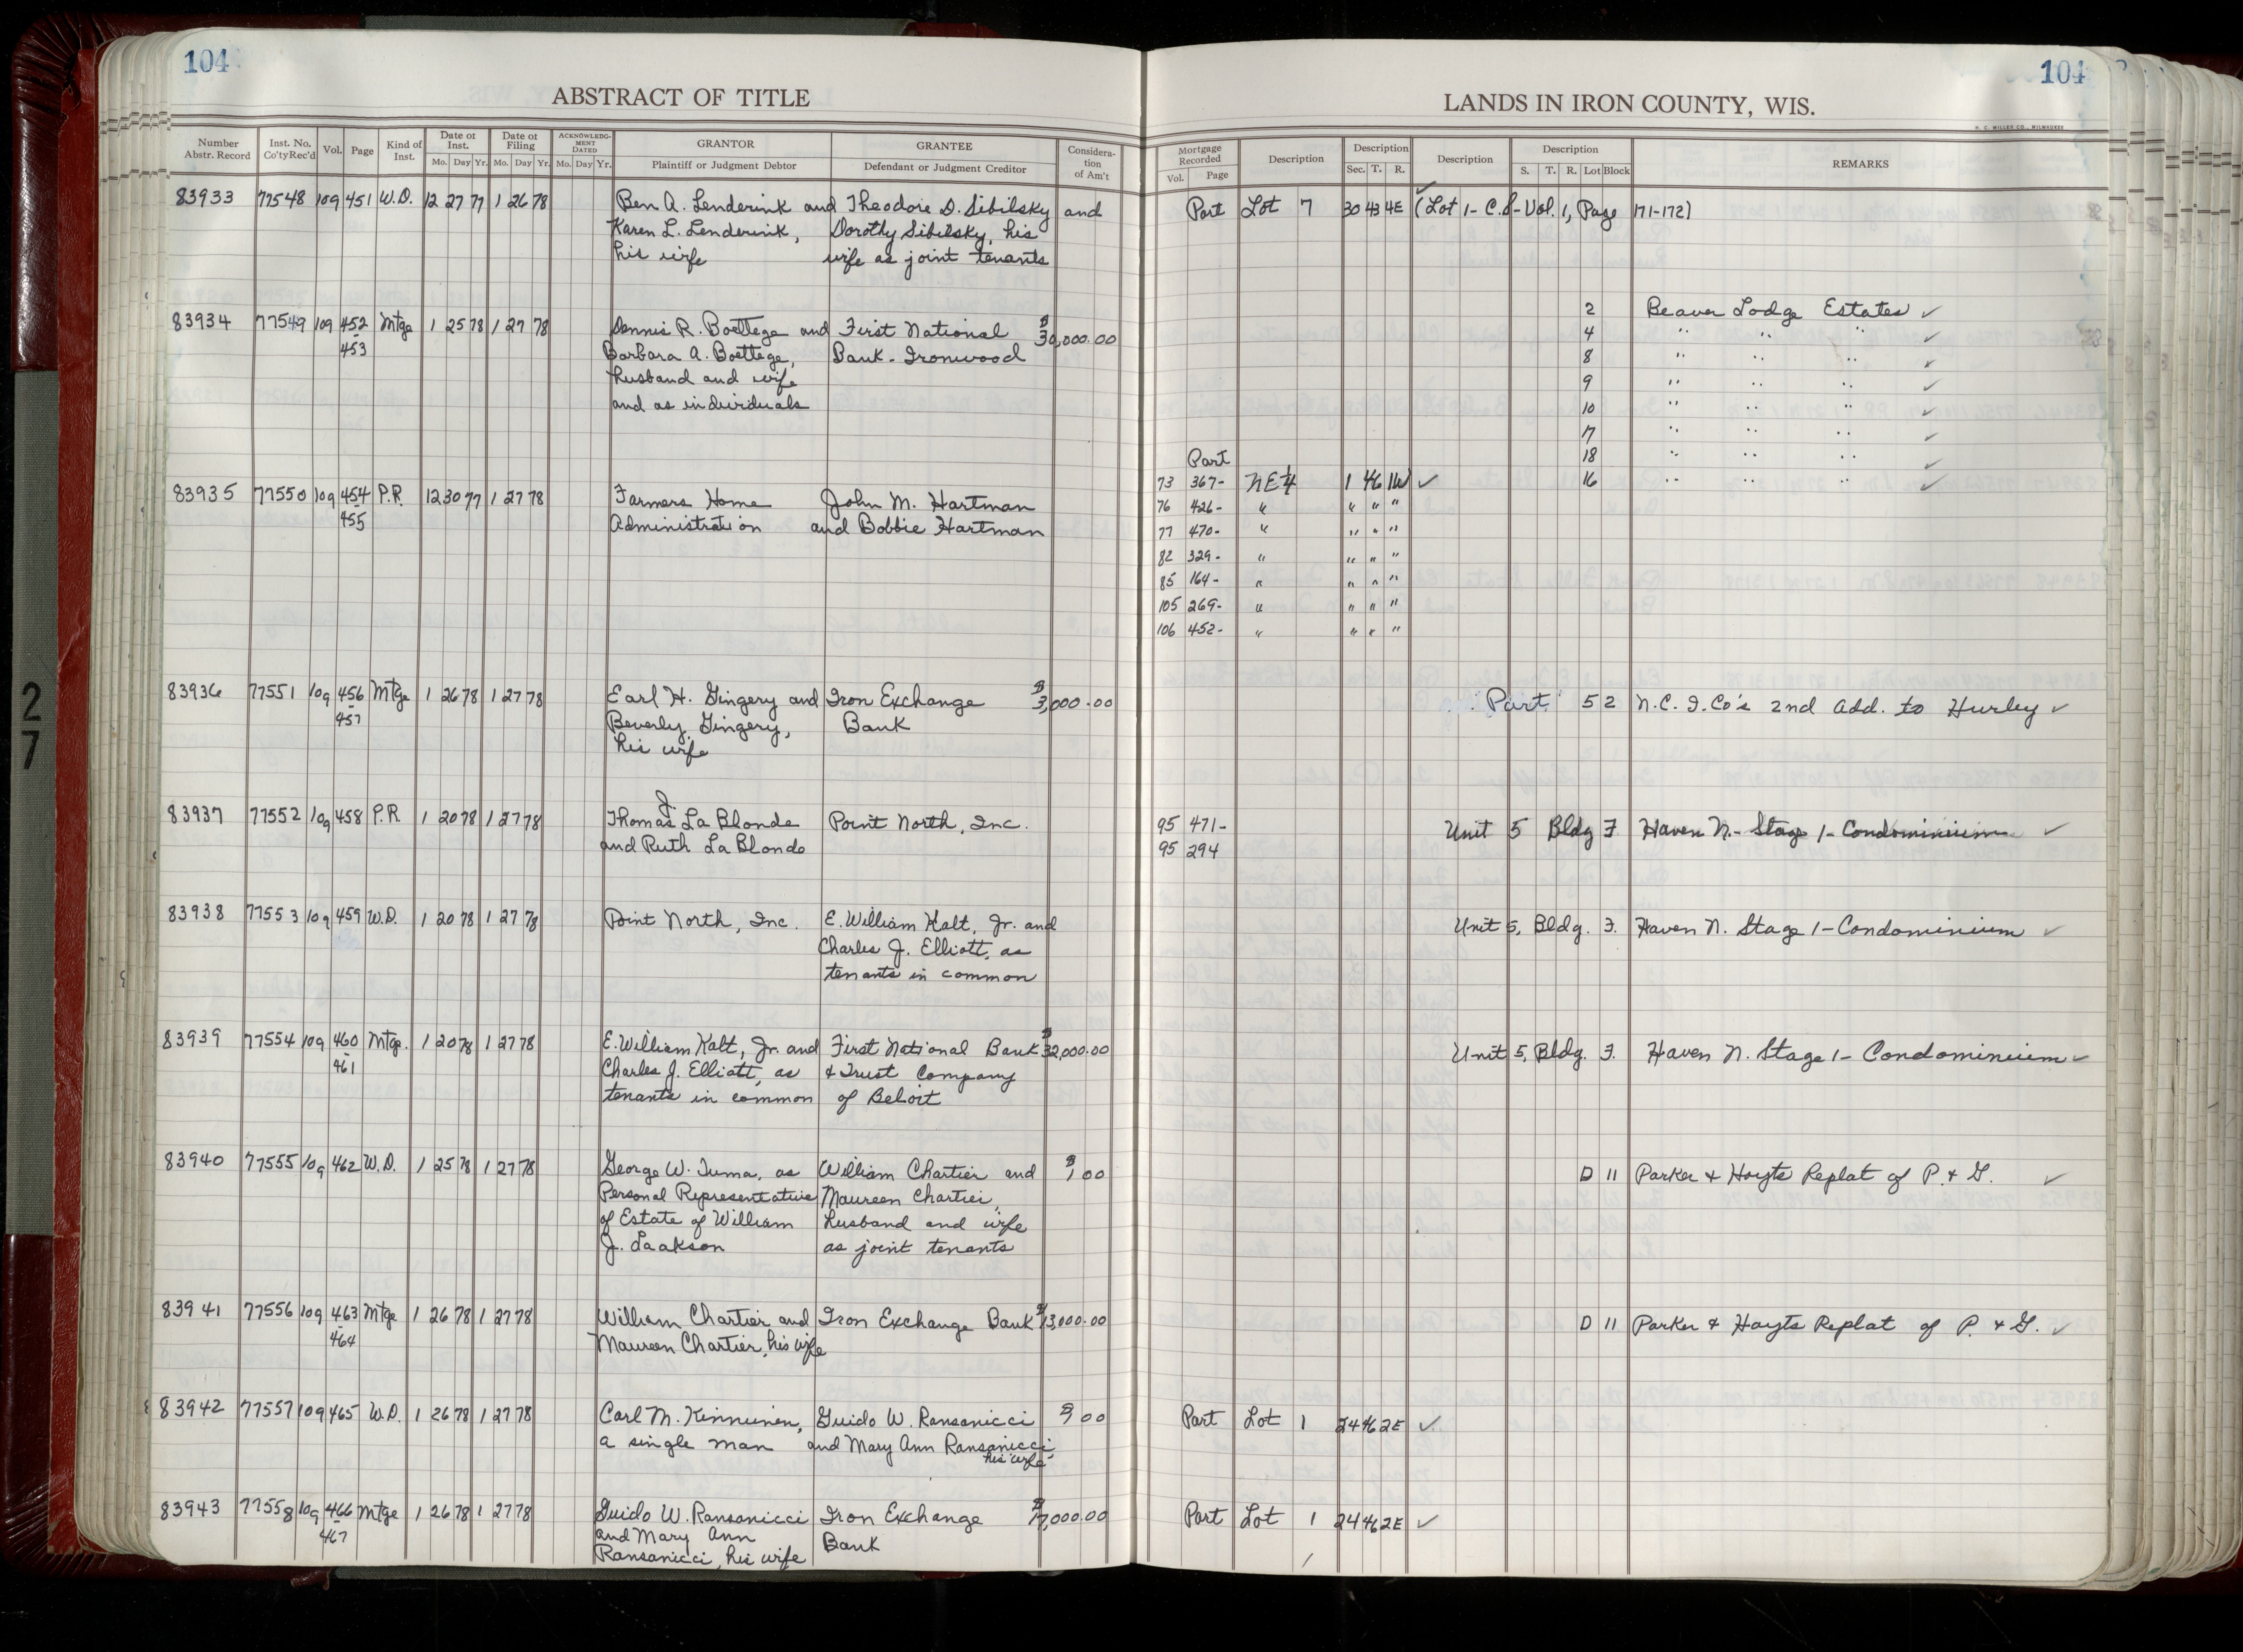 104
104
ABSTRACT OF TITLE
LANDS IN IRON COUNTY, WIS.
H. C. MILLER CO., MILWAUKEE
Number Abstr. Record Inst. No. Co'ty Rec'd Vol. Page Kind of Inst. Date of Inst. Mo. Day Yr. Date of Filing Mo. Day Yr. ACKNOWLEDGMENT DATED Mo. Day Yr. GRANTOR Plaintiff or Judgment Debtor GRANTEE Defendant or Judgment Creditor Consideration of Am't
Mortgage Recorded Vol. Page Description Description Sec. T. R. Description Description S. T. R. Lot Block REMARKS
83933 77548 109 451 W.D. 12 27 77 1 26 78 Ben A. Lenderink and Theodore D. Sibilsky and Part Lot 7 30 43 4E ✓ (Lot 1 - C.S - Vol. 1, Page 171-172)
Karen L. Lenderink, Dorothy Sibilsky, his
his wife wife as joint tenants
2 Beaver Lodge Estates ✓
83934 77549 109 452 Mtge 1 25 78 1 27 78 Dennis R. Boettege and First National $30,000.00 4 " " " ✓
453 Barbara A. Boettege, Bank - Ironwood 8 " " " ✓
husband and wife 9 " " " ✓
and as individuals 10 " " " ✓
17 " " " ✓
Part 18 " " " ✓
73 367- NE¼ 1 46 1W ✓ 16 " " " ✓
83935 77550 109 454 P.R. 12 30 77 1 27 78 Farmers Home John M. Hartman 76 426- " " " "
455 Administration and Bobbie Hartman 77 470- " " " "
82 329- " " " "
85 164- " " " "
105 269- " " " "
106 452- " " " "
83936 77551 109 456 Mtge 1 26 78 1 27 78 Earl H. Gingery and Iron Exchange $3,000.00 Part 5 2 N.C.I.Co's 2nd Add. to Hurley ✓
457 Beverly Gingery, Bank
his wife
83937 77552 109 458 P.R 1 20 78 1 27 78 Thomas J. La Blonde Point North, Inc. 95 471- Unit 5 Bldg F Haven N.- Stage 1 - Condominium ✓
and Ruth La Blonde 95 294
83938 77553 109 459 W.D. 1 20 78 1 27 78 Point North, Inc. E. William Kalt, Jr. and Unit 5, Bldg. F. Haven N. Stage 1 - Condominium ✓
Charles J. Elliott, as
tenants in common
83939 77554 109 460 Mtge. 1 20 78 1 27 78 E. William Kalt, Jr. and First National Bank $32,000.00 Unit 5, Bldg. F. Haven N. Stage 1 - Condominium ✓
461 Charles J. Elliott, as & Trust Company
tenants in common of Beloit
83940 77555 109 462 W.D. 1 25 78 1 27 78 George W. Tuma, as William Chartier and $1.00 D 11 Parker & Hoyts Replat of P. & G. ✓
Personal Representative Maureen Chartier,
of Estate of William husband and wife
J. Laakson as joint tenants
83941 77556 109 463 Mtge 1 26 78 1 27 78 William Chartier and Iron Exchange Bank $13,000.00 D 11 Parker & Hoyts Replat of P. & G. ✓
464 Maureen Chartier, his wife
83942 77557 109 465 W.D. 1 26 78 1 27 78 Carl M. Kinnunen, Guido W. Ransanicci Part Lot 1 24 46 2E ✓
a single man and Mary Ann Ransanicci
his wife
83943 77558 109 466 Mtge 1 26 78 1 27 78 Guido W. Ransanicci Iron Exchange Part Lot 1 24 46 2E ✓
467 and Mary Ann Bank
Ransanicci, his wife
27